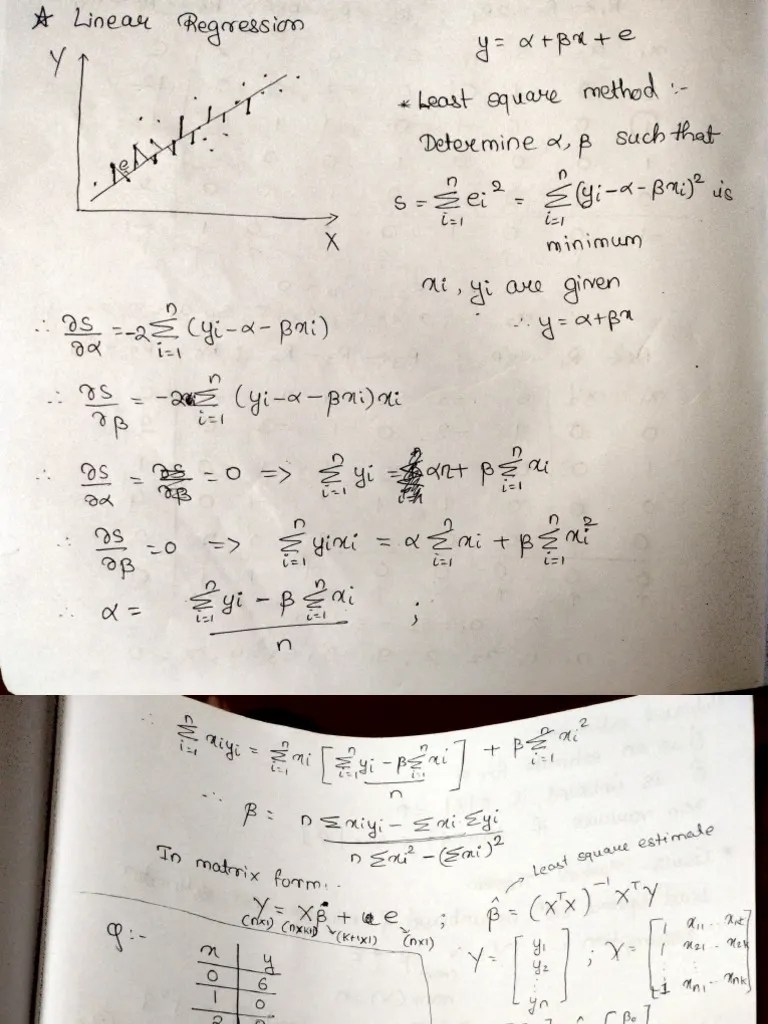 ☆ Linear Regression
y = α + βx + e
Y
e
X
* Least square method :-
Determine α, β such that
S = Σ_{i=1}^{n} ei² = Σ_{i=1}^{n} (yi - α - βxi)² is
minimum
xi, yi are given
∴ y = α + βx
∴ ∂S/∂α = -2 Σ_{i=1}^{n} (yi - α - βxi)
∴ ∂S/∂β = -2 Σ_{i=1}^{n} (yi - α - βxi) xi
∴ ∂S/∂α = 0 => Σ_{i=1}^{n} yi = αn + β Σ_{i=1}^{n} xi
∴ ∂S/∂β = 0 => Σ_{i=1}^{n} yixi = α Σ_{i=1}^{n} xi + β Σ_{i=1}^{n} xi²
∴ α = (Σ_{i=1}^{n} yi - β Σ_{i=1}^{n} xi) / n ;
∴ Σ_{i=1}^{n} xiyi = Σ_{i=1}^{n} xi [(Σ_{i=1}^{n} yi - β Σ_{i=1}^{n} xi) / n] + β Σ_{i=1}^{n} xi²
∴ β = (n Σxiyi - Σxi · Σyi) / (n Σxi² - (Σxi)²)
In matrix form..
Least square estimate
Y = Xβ + e ; β̂ = (XᵀX)⁻¹ XᵀY
(n×1) (n×k+1) (k+1×1) (n×1)
Y = [y1 y2 : yn] ; X = [1 x11 ... x1k
1 x21 .. x2k
: :
1 xn1 .. xnk]
Q:-
x y
0 6
1 0
2
β0